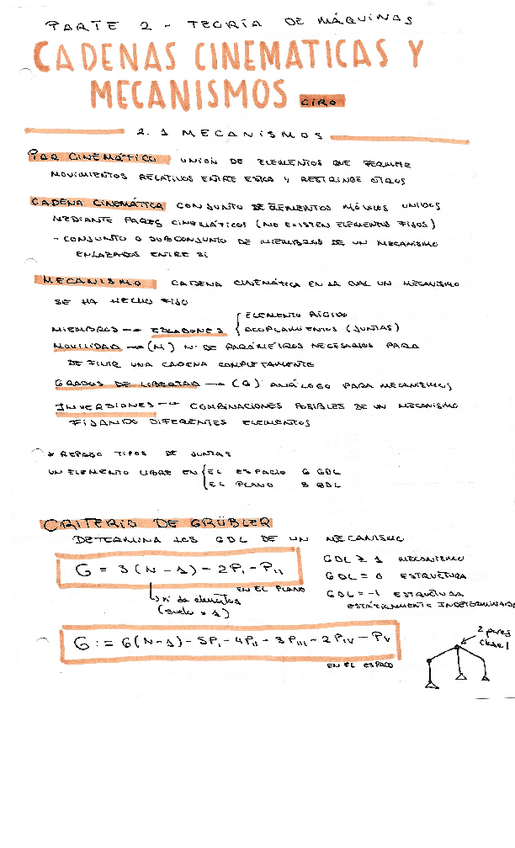 PARTE 2 - TEORÍA DE MÁQUINAS
CADENAS CINEMATICAS Y
MECANISMOS CIRO
2.1 MECANISMOS
PAR CINEMÁTICO UNIÓN DE ELEMENTOS QUE PERMITE
MOVIMIENTOS RELATIVOS ENTRE ESTOS Y RESTRINGE OTROS
CADENA CINEMÁTICA CONJUNTO DE ELEMENTOS MÓVILES UNIDOS
MEDIANTE PARES CINEMÁTICOS (NO EXISTEN ELEMENTOS FIJOS)
- CONJUNTO O SUBCONJUNTO DE MIEMBROS DE UN MECANISMO
ENLAZADOS ENTRE SI
MECANISMO CADENA CINEMÁTICA EN LA CUAL UN MECANISMO
SE HA HECHO FIJO
MIEMBROS → ESLABONES { ELEMENTO RÍGIDO
ACOPLAMIENTOS (JUNTAS)
MOVILIDAD → (M) Nº DE PARÁMETROS NECESARIOS PARA
DEFINIR UNA CADENA COMPLETAMENTE
GRADOS DE LIBERTAD → (G) ANÁLOGO PARA MECANISMOS
INVERSIONES → COMBINACIONES POSIBLES DE UN MECANISMO
FIJANDO DIFERENTES ELEMENTOS
* REPASO TIPOS DE JUNTAS
UN ELEMENTO LIBRE EN { EL ESPACIO 6 GDL
EL PLANO 3 GDL
CRITERIO DE GRÜBLER
DETERMINA LOS GDL DE UN MECANISMO
G = 3(N-1) - 2PI - PII
EN EL PLANO
nº de elementos
(suelo = 1)
GDL ≥ 1 MECANISMO
GDL = 0 ESTRUCTURA
GDL = -1 ESTRUCTURA
ESTÁTICAMENTE INDETERMINADA
G := 6(N-1) - 5PI - 4PII - 3PIII - 2PIV - PV
EN EL ESPACIO
2 pares
clase I